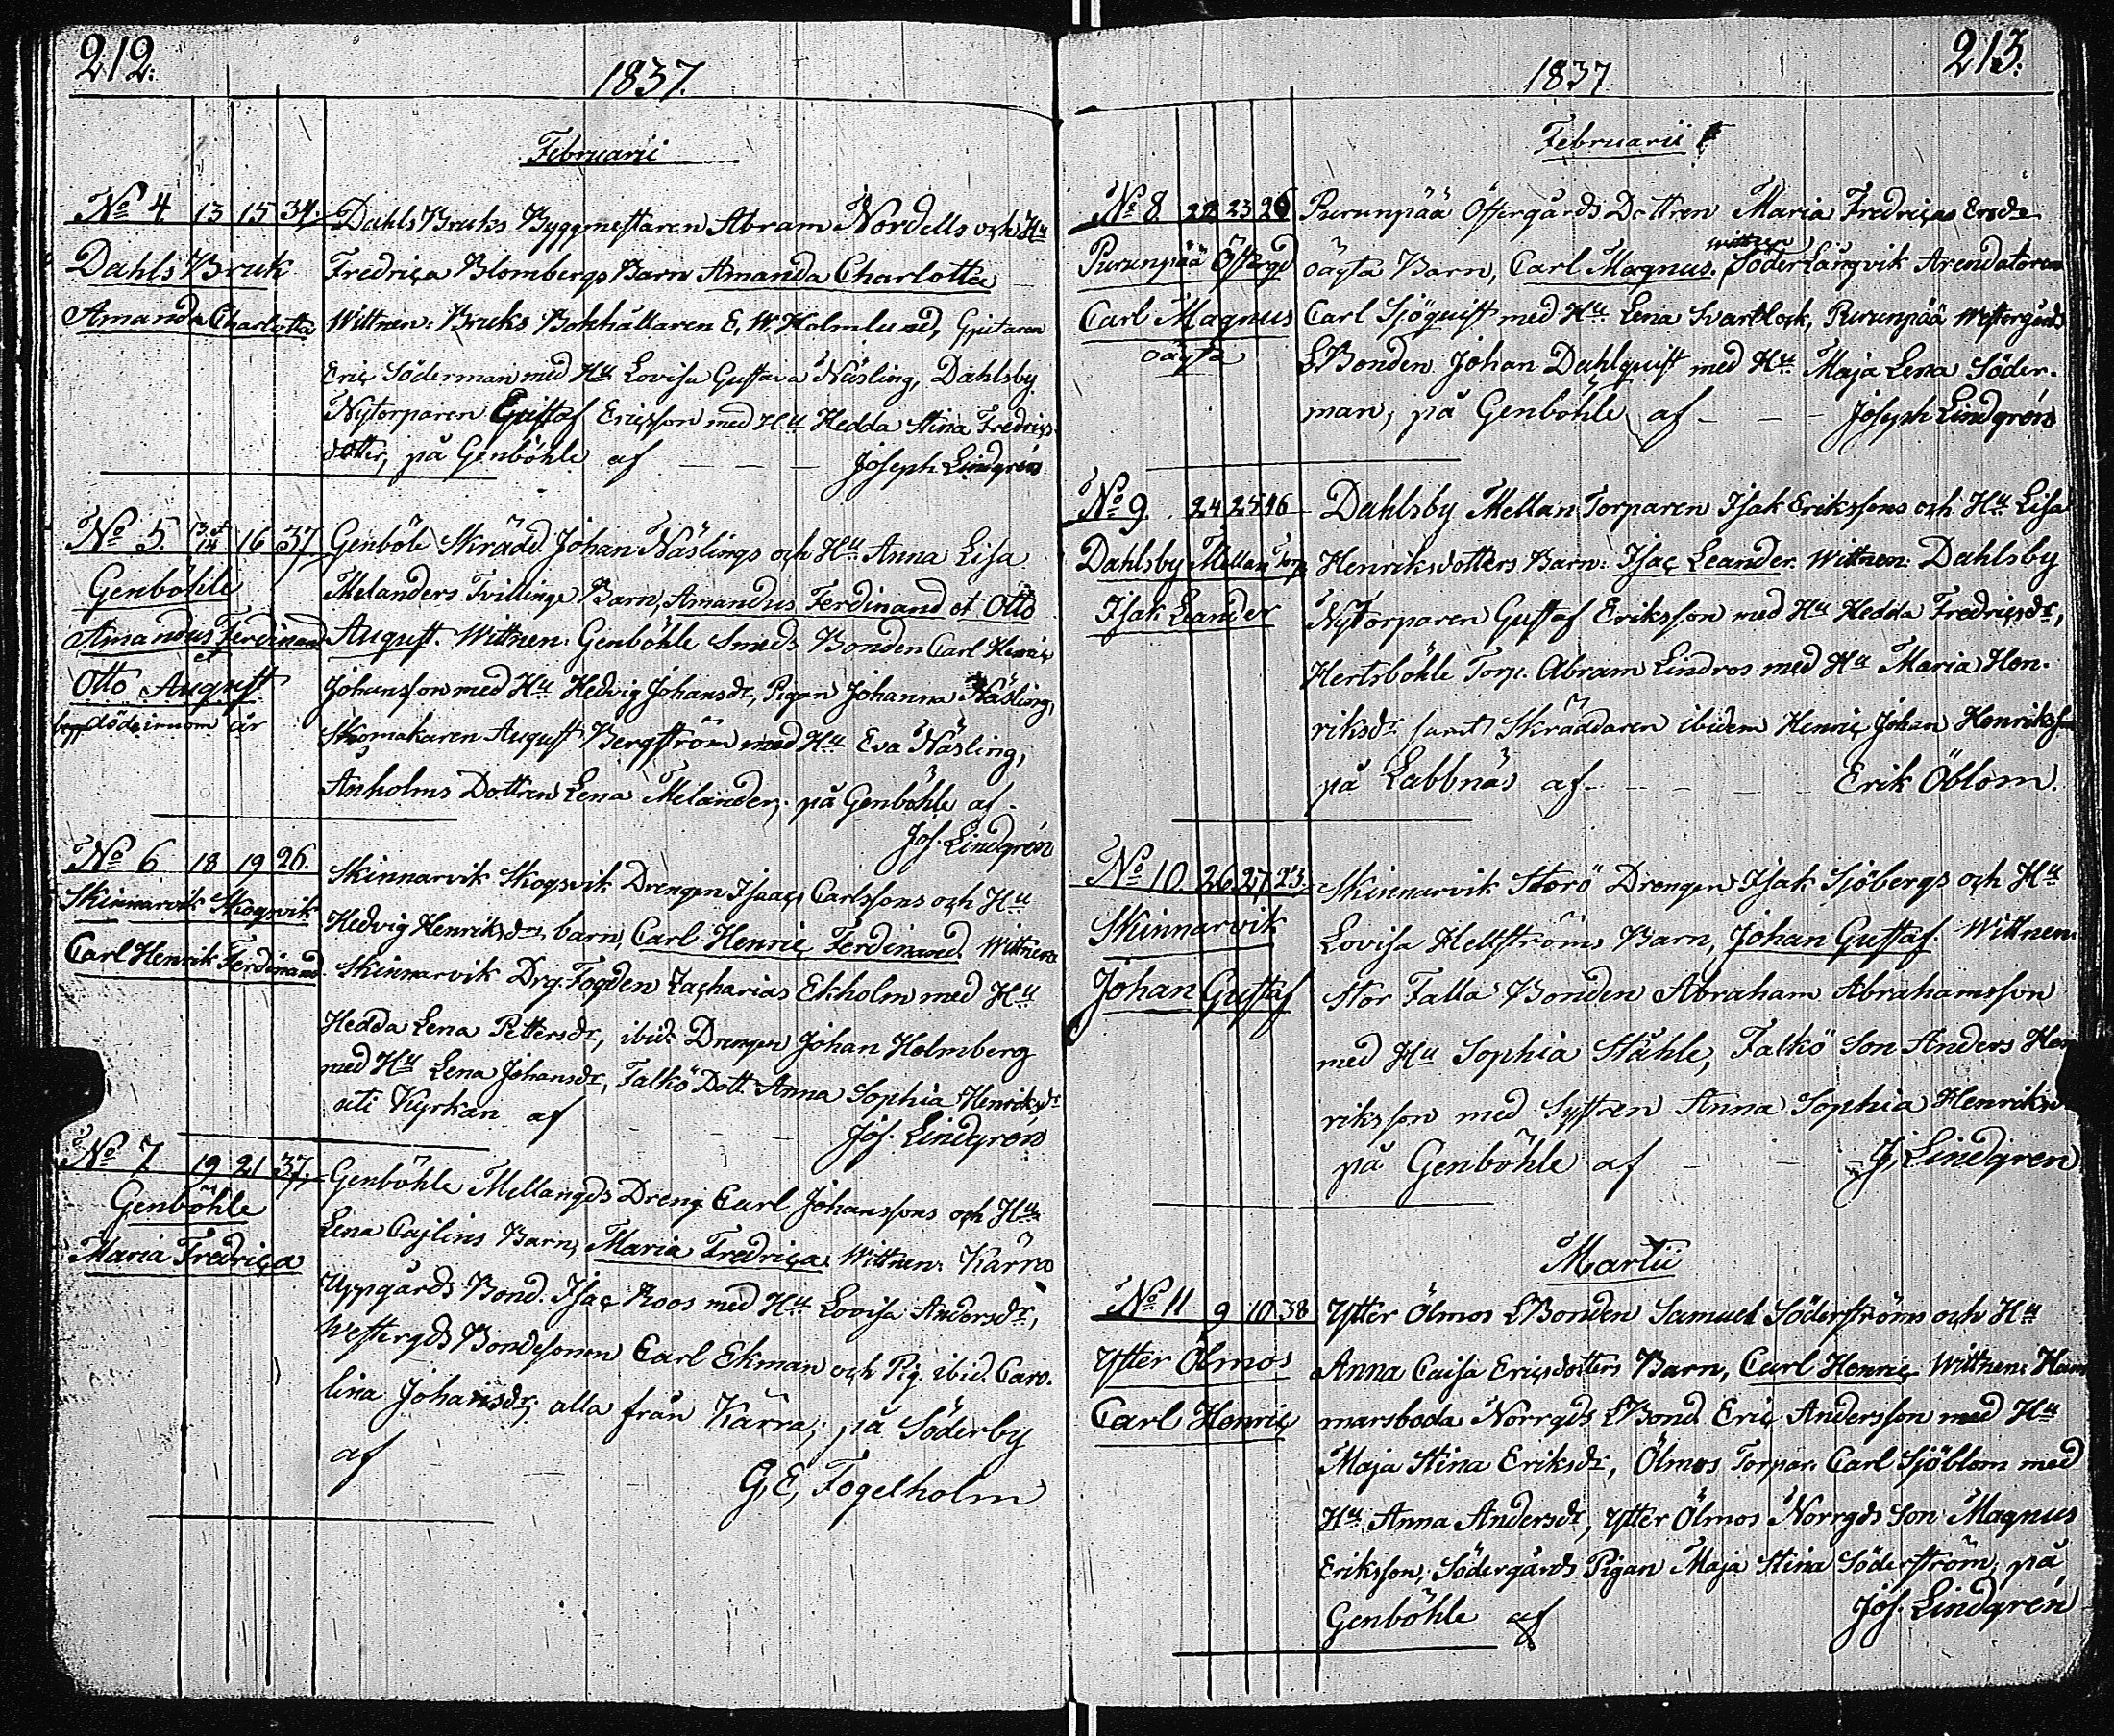 212.
1837.
Februarii
No 4 13 15 34.
Dahls Bruk
Amanda Charlotta
Dahls Bruks Byggmestaren Abram Nordells och Hu
Fredrica Blombergs Barn Amanda Charlotta
Wittnen: Bruks Bokhållaren E. W. Holmlund, Gjutaren
Eric Söderman med Hu Lovisa Gustava Näsling, Dahlsby
Nytorparen Gustaf Ericsson med Hu Hedda Stina Fredrics
dotter, på Genböhle af — — — Joseph Lindgrén
No 5. 13 et 14 16 37
Genböhle
Amandus Ferdinand
et
Otto August
begge döde inom år
Genböle Skrädd. Johan Näslings och Hu Anna Lisa
Melanders Tvillinge Barn, Amandus Ferdinand et Otto
August. Wittnen. Genböhle Smeds Bonden Carl Henric
Johansson med Hu Hedvig Johansdr, Pigan Johanna Näsling,
Skomakaren August Bergström med Hu Eva Näsling,
Anholms Dottren Lena Melander, på Genböhle af.
Jos. Lindgrén
No 6 18 19 26.
Skinnarvik Skogsvik
Carl Henrik Ferdinand
Skinnarvik Skogsvik Drengen Isaac Carlssons och Hu
Hedvig Henriksdrs barn, Carl Henric Ferdinand. Wittnen
Skinnarvik Drg. Fogden Zacharias Ekholm med Hu
Hedda Lena Pettersdr, ibid. Drengen Johan Holmberg
med Hu Lena Johansdr, Falkö Dott. Anna Sophia Henriksdr
uti Kyrkan af — — Jos. Lindgren
No 7 19 21 37.
Genböhle
Maria Fredrica
Genböhle Mellangds Dreng Carl Johanssons och Hu
Lena Cajlins Barn, Maria Fredrica. Wittnen. Kärra
Uppgårds Bond. Isac Roos med Hu Lovisa Andersdr,
Westergds Bondesonen Carl Ekman och Pig. ibid. Caro-
lina Johansdr, alla från Kärra, på Söderby
af G. E. Fogelholm
213.
1837
Februarii
No 8 22 23 26
Purunpää Öftergd
Carl Magnus
oägta
Purunpää Öftergårds Dottren Maria Fredricas Ersdr
oägta Barn, Carl Magnus. wittnen Söderlångvik Arendatoren
Carl Sjöquist med Hu Lena Svartbock, Purunpää Westergårds
LBonden Johan Dahlquist med Hu Maja Lena Söder-
man, på Genböhle af — — — Joseph Lindgrén
No 9. 24 25 16
Dahlsby Mellan Torp
Isak Leander
Dahlsby Mellan Torparen Isak Erikssons och Hu Lisa
Henriksdotters Barn: Isac Leander. Wittnen: Dahlsby
Nytorparen Gustaf Eriksson med Hu Hedda Fredricsdr,
Hertsböhle Torp. Abram Lindros med Hu Maria Hen-
riksdr samt Skräddaren ibidem Henric Johan Henriksson
på Labbnäs af — — — Erik Öblom.
No 10. 26 27 23.
Skinnarvik
Johan Gustaf
Skinnarvik Storö Drengen Isak Sjöbergs och Hu
Lovisa Hellströms Barn, Johan Gustaf. Wittnen.
Stor Falla Bonden Abraham Abrahamsson
med Hu Sophia Ståhle, Falkö Son Anders Hen
riksson med Systren Anna Sophia Henriksdr
på Genböhle af — — J. Lindgren
Martii
No 11 9 10 38
Ytter Ölmos
Carl Henric
Ytter Ölmos LBonden Samuel Söderströms och Hu
Anna Caisa Ericsdotters Barn, Carl Henric. Wittnen: Ham
marsboda Norrgds LBond Eric Andersson med Hu
Maja Stina Eriksdr, Ölmos Torpar. Carl Sjöblom med
Hu Anna Andersdr, Ytter Ölmos Norrgds Son Magnus
Eriksson, Södergårds Pigan Maja Stina Söderström, på
Genböhle af Jos. Lindgrén